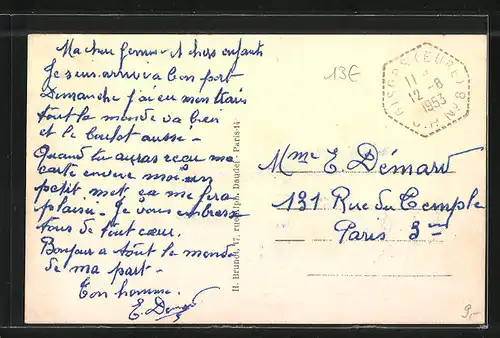 Ma chere femme et chers enfants
Je suis arrivé a bon port
Dimanche j'ai eu mon train
tout la monde va bien
et le boulot aussi -
Quand tu auras recu ma
carte envoie moi un
petit mot ca me fera
plaisir - Je vous embrasse
tous de tout cœur.
Bonjour a tout le monde
de ma part -
Ton homme.
E. Demard
H. Brunot, 47, rue Alph. Daudet - Paris-14
13€
(EURE)
11
12 - 8
1953
C.P. N° 8
Mme E. Démard
131 Rue du Temple
Paris 3me
9,-